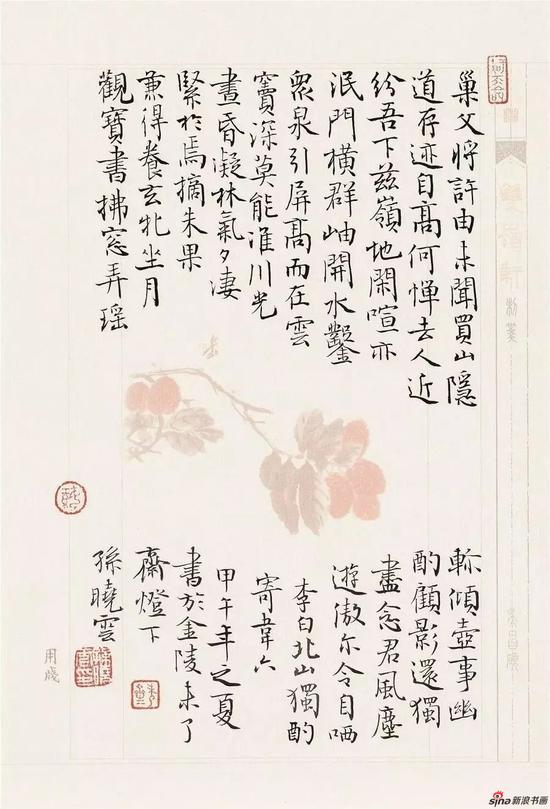 巢父將許由未聞買山隱
道存迹自高何憚去人近
紛吾下兹嶺地閑喧亦
泯門橫群岫開水鑿
衆泉引屏高而在雲
竇深莫能淮川光
晝昏凝林氣夕淒
緊於焉摘朱果
兼得養玄牝坐月
觀寶書拂窓弄瑶
軫傾壺事幽
酌顧影還獨
盡念君風塵
遊傲尔令自哂
李白北山獨酌
寄韋六
甲午年之夏
書於金陵未了
齋燈下
孫曉雲
用牋
sina新浪书画